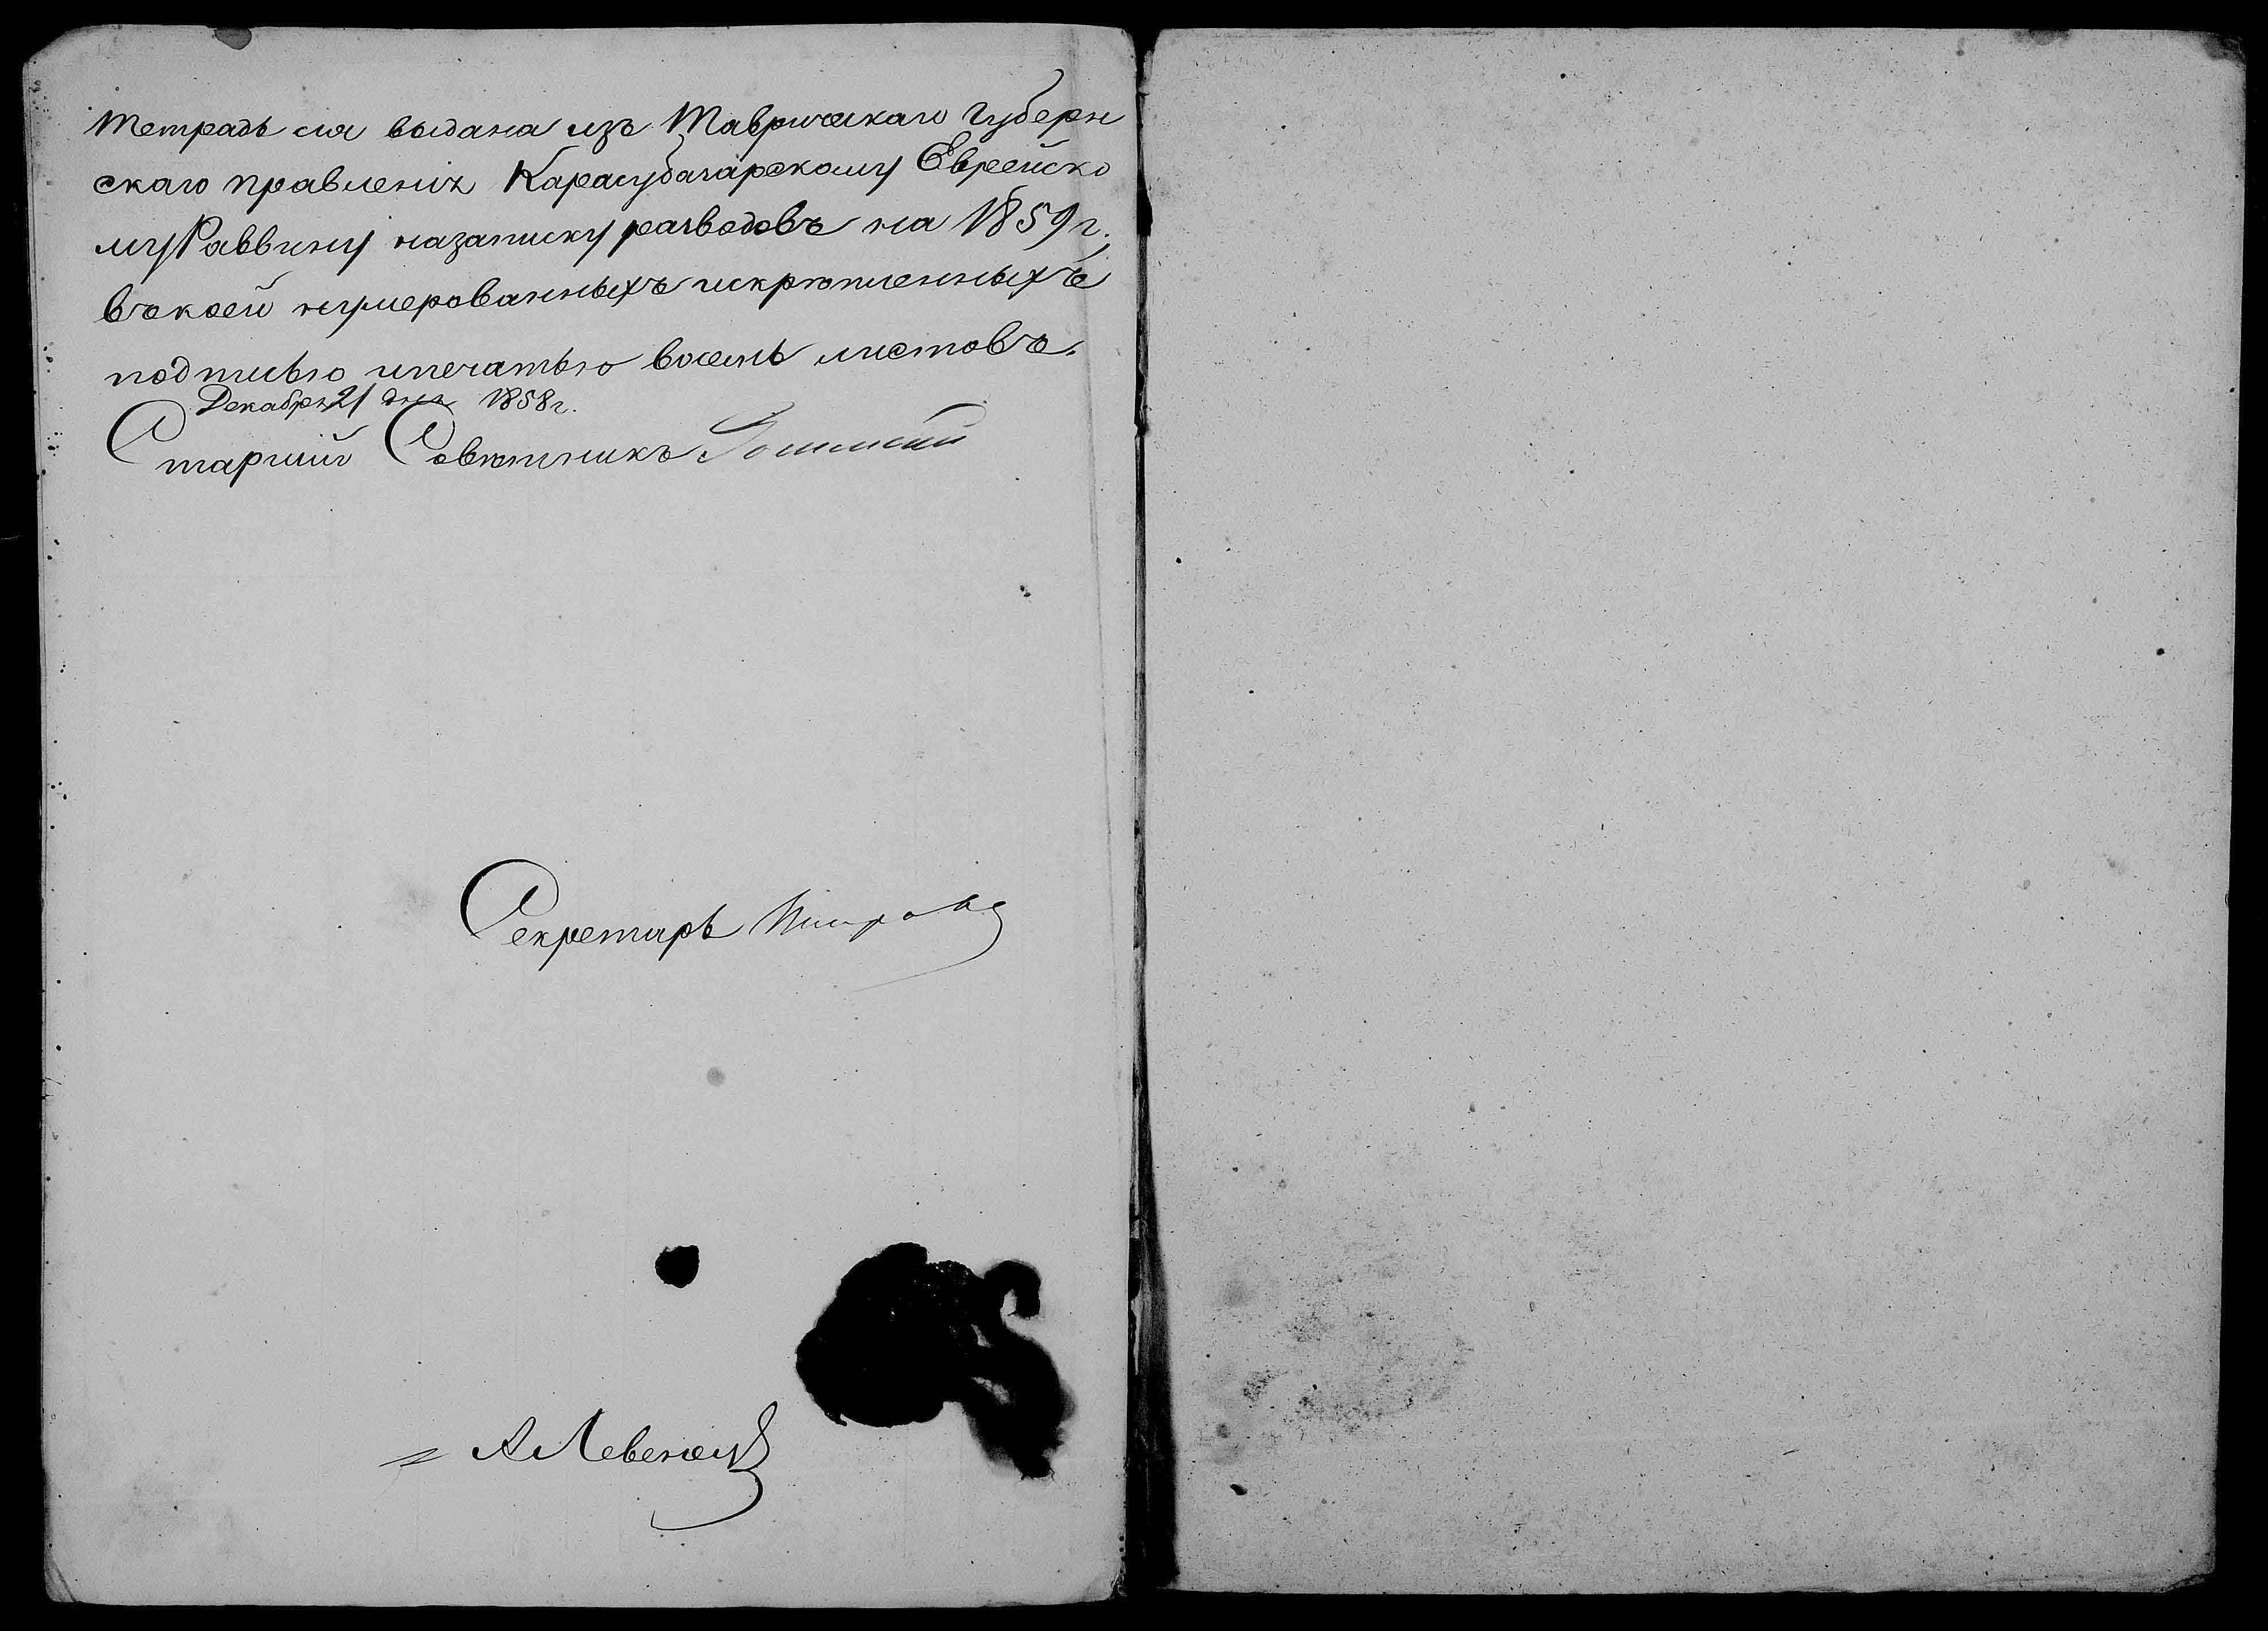 Тетрадь сія выдана изъ Таврическаго Губерн
скаго Правленія Карасубазарскому Еврейско
му Раввину на записку разводовъ на 1859 г.,
въ коей нумерованныхъ и скрѣпленныхъ
подписью и печатью восемь листовъ.
Декабря 21 дня 1858 г.
Старшій Совѣтникъ
Секретарь